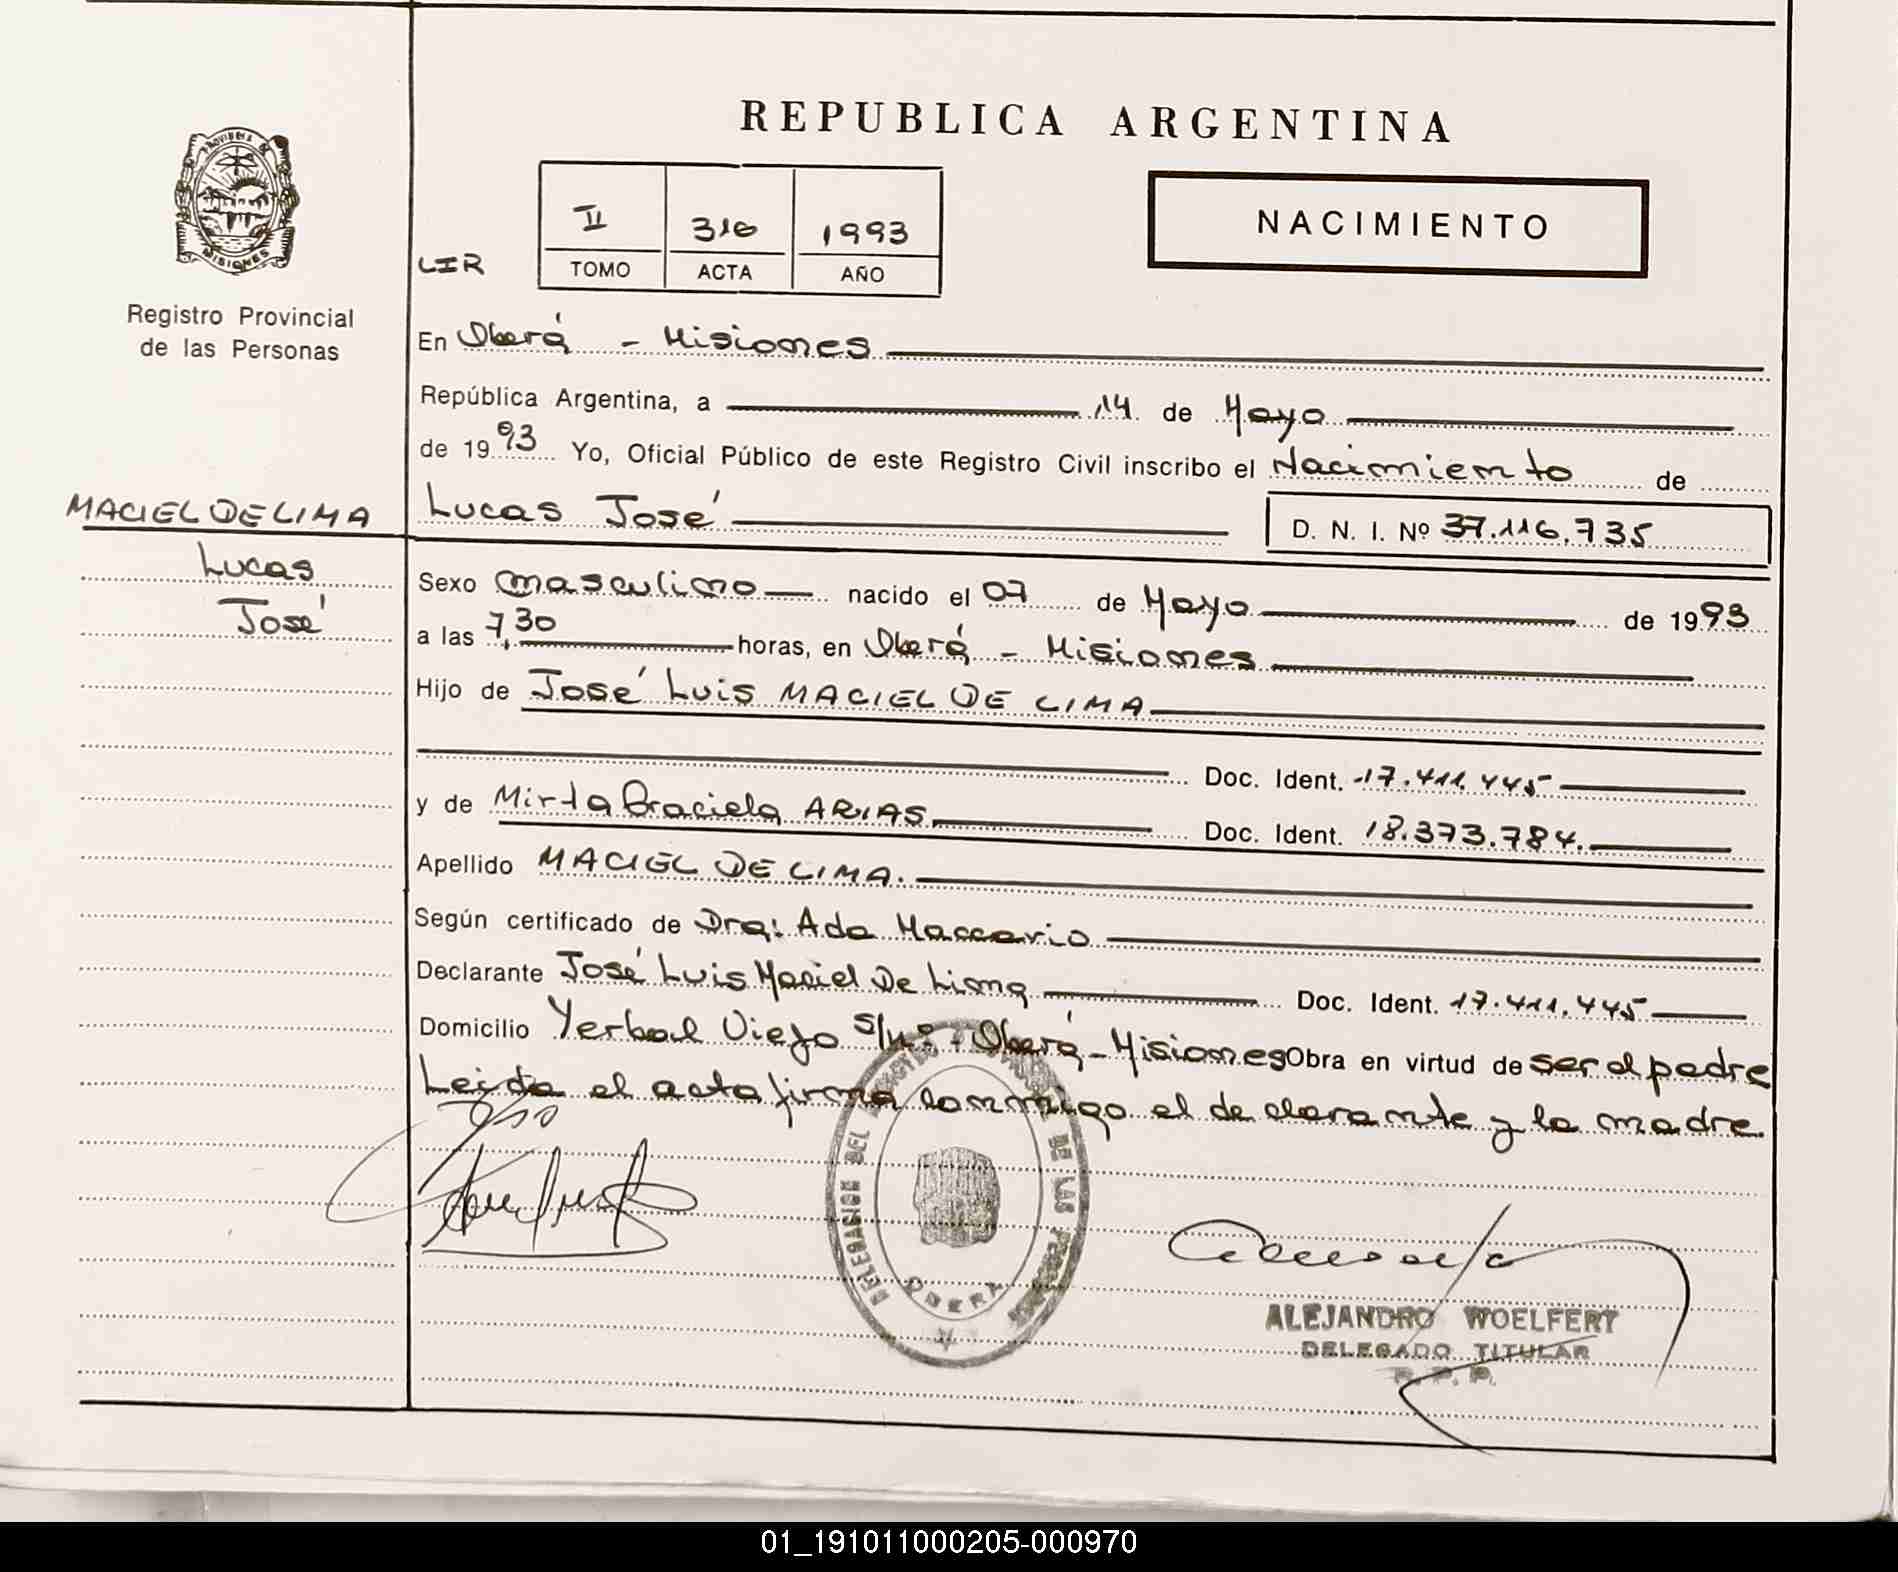 REPUBLICA ARGENTINA
PROVINCIA DE
MISIONES
Registro Provincial
de las Personas
LIR
II 316 1993
TOMO ACTA AÑO
NACIMIENTO
En Oberá - Misiones
República Argentina, a 14 de Mayo
de 1993 Yo, Oficial Público de este Registro Civil inscribo el Nacimiento de
MACIEL DE LIMA
Lucas
José
Lucas José D. N. I. Nº 37.116.735
Sexo masculino nacido el 07 de Mayo de 1993
a las 7,30 horas, en Oberá - Misiones
Hijo de José Luis MACIEL DE LIMA
Doc. Ident. 17.411.445
y de Mirta Graciela ARIAS Doc. Ident. 18.373.784.
Apellido MACIEL DE LIMA.
Según certificado de Dra: Ada Maccario
Declarante José Luis Maciel De Lima Doc. Ident. 17.411.445
Domicilio Yerbal Viejo s/nº - Oberá - Misiones Obra en virtud de ser el padre
Leida el acta firma conmigo el declarante y la madre
DELEGACION DEL DE LAS PERSONAS
OBERA
ALEJANDRO WOELFERT
DELEGADO TITULAR
R. P. P.
01_191011000205-000970